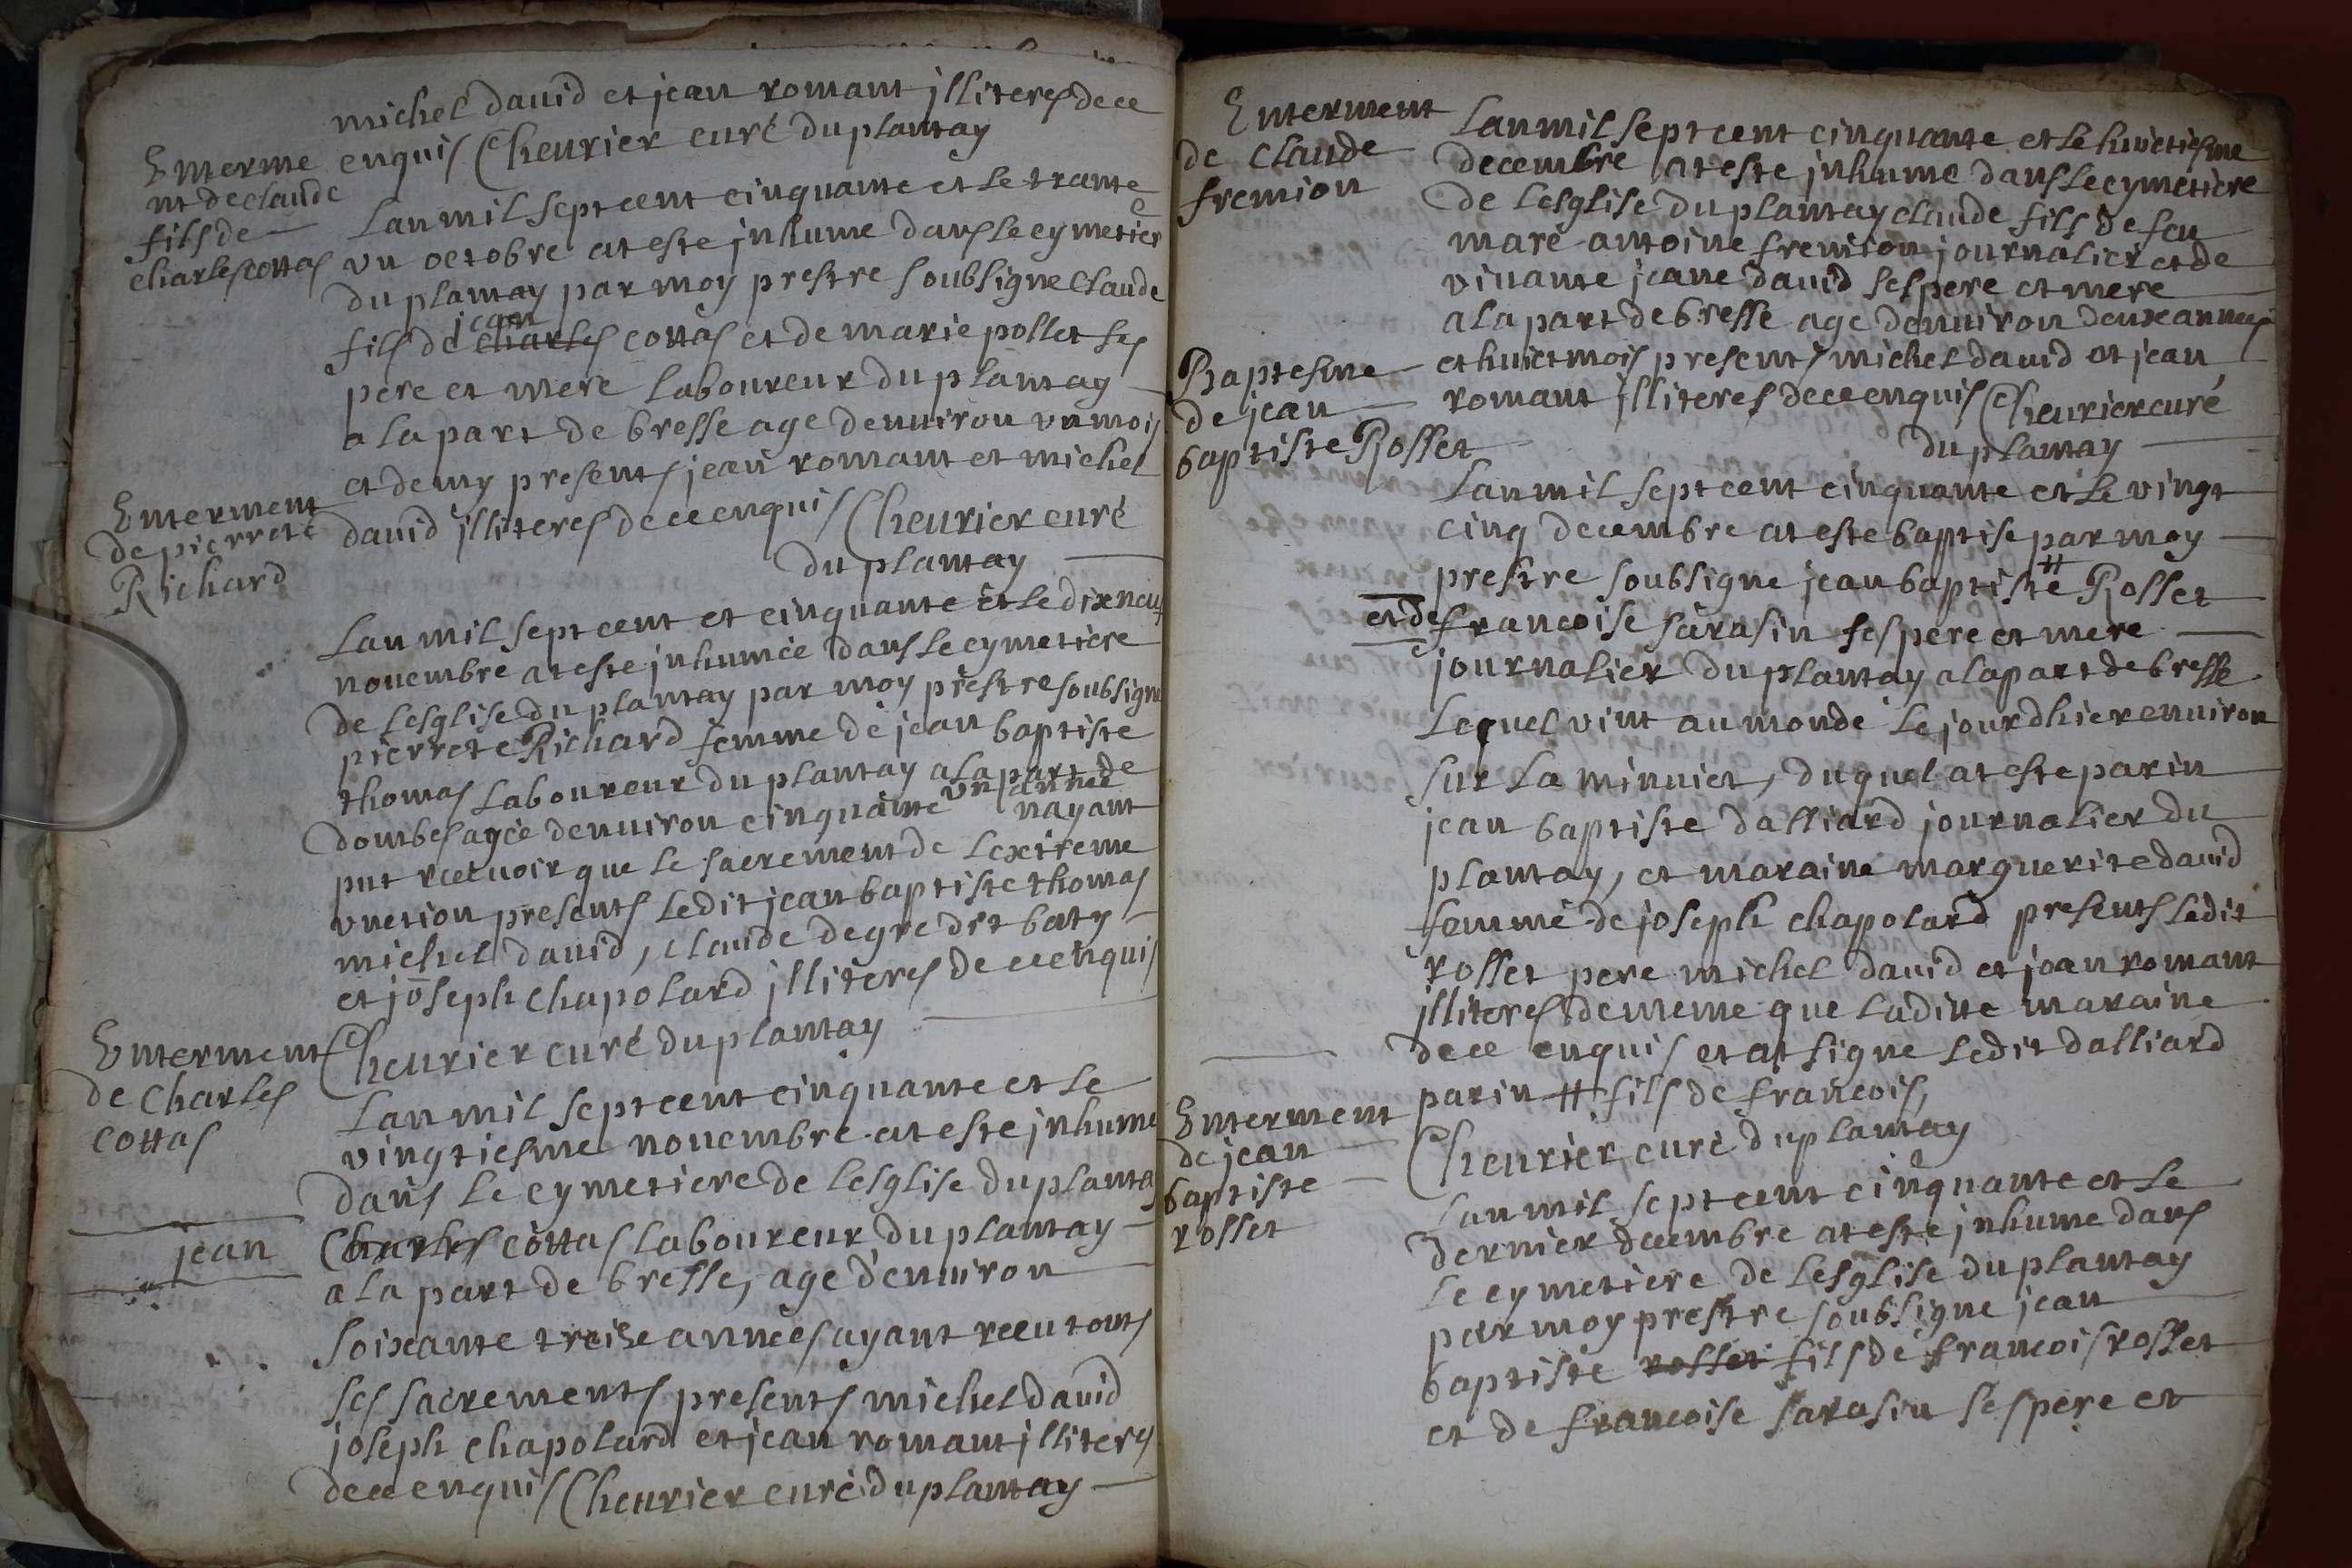 michel david et jean romant jlliteres dece
enquis Cheurier curé du plantay
Enterme
nt de claude
fils de
charles cottas
Lan mil sept cent cinquante et le trante
vn octobre at este jnhume dans le cymetier
du plantay par moy prestre soubsigne Claude
jean
fils de charles cottas et de marie pollet ses
pere et mere laboureur du plantay
a la part de bresse age denuiron vn mois
et demy presents jean romant et michel
david jlliteres dece enquis Cheurier curé
du plantay
Enterment
de pierrete
Richard
Lan mil sept cent et cinquante et le dixneuf
nouembre at este jnhumée dans le cymetiere
de lesglise du plantay par moy prestre soubsigne
pierrete Richard femme de jean baptiste
thomas laboureur du plantay a la part de
dombes agée denuiron cinquante vn année nayant
put receuoir que le sacrement de lextreme
vnction presents ledit jean baptiste thomas
michel david, claude degre dit baty
et joseph chapolard jlliteres de ce enquis
Cheurier curé du plantay
Enterment
de Charles
cottas
Lan mil sept cent cinquante et le
vingtiesme nouembre at este jnhume
dans le cymetiere de lesglise du planta
jean
Charles cottas laboureur du plantay
a la part de bresse, age denuiron
soixante treise années ayant receu touts
ses sacrements presents michel david
joseph chapolard et jean romant jlliteres
dece enquis Cheurier curé du plantay
Enterment
de claude
fremion
Lan mil sept cent cinquante et le huictiesme
decembre at este jnhume dans le cymetiere
de lesglise du plantay claude fils de feu
marc antoine fremion journalier et de
viuante jeane david ses pere et mere
a la part de bresse age denuiron deux annees
et huict mois presents michel david et jean
romant jlliteres dece enquis Cheurier curé
du plantay
Baptesme
de jean
baptiste Rosset
Lan mil sept cent cinquante et le vingt
cinq decembre at este baptise par moy
prestre soubsigne jean baptiste # Rosset
et de francoise sarasin ses pere et mere
journalier du plantay a la part de bresse
Lequel vint au monde le jourdhier enuiron
sur la minuict, duquel at este parin
jean baptiste dalliard journalier du
plantay, et maraine marguerite david
femme de joseph chapolard presents ledit
rosset pere michel david et jean romant
jlliteres de meme que ladite maraine
dece enquis et at signe ledit dalliard
parin # fils de francois,
Cheurier curé du plantay
Enterment
de jean
baptiste
rosset
Lan mil sept cent cinquante et le
dernier decembre at este jnhume dans
le cymetiere de lesglise du plantay
par moy prestre soubsigne jean
baptiste rosset fils de francois rosset
et de francoise sarasin ses pere et